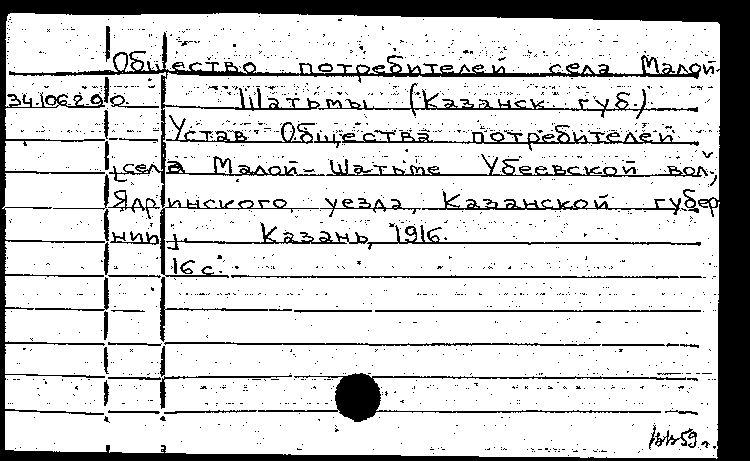 Общество потребителей села Малой-
34.106.2.00. Шатьмы (Казанск. губ.)
Устав Общества потребителей
[села Малой-Шатьме Убеевской вол.,
Ядринского уезда, Казанской губер
нии]. Казань, 1916.
16 с.